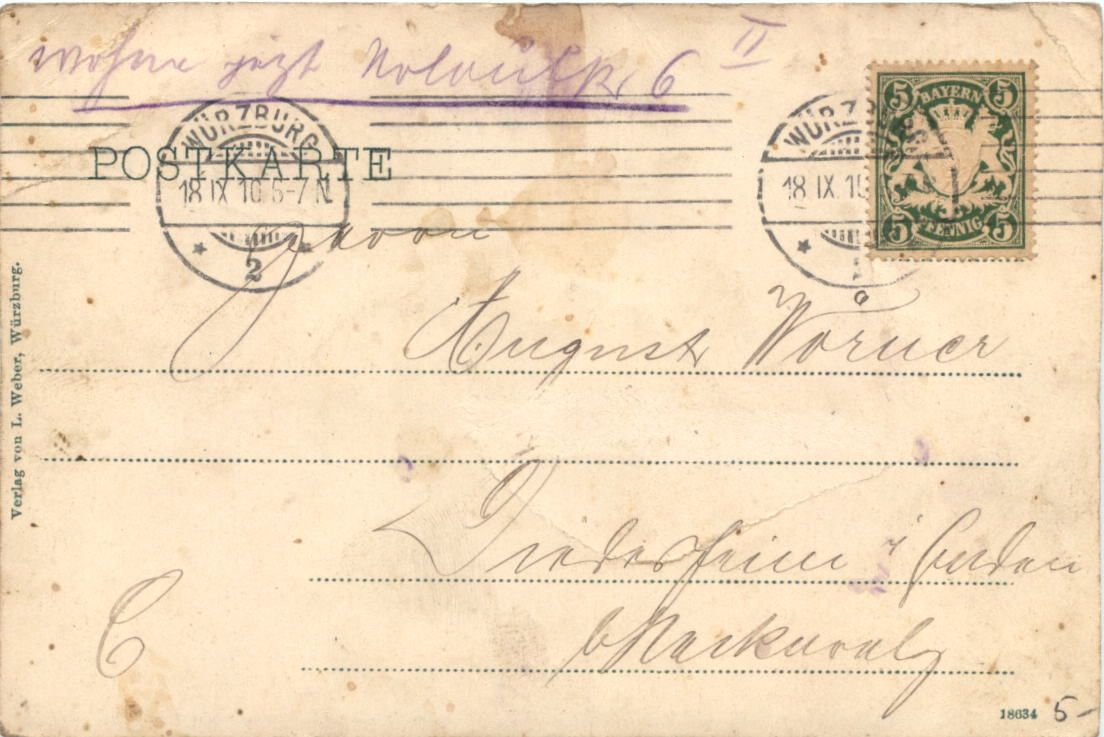 wohne jetzt 6 II
POSTKARTE
WÜRZBURG
18 IX 10 5-7 N
2
WÜRZB
18 IX. 1
BAYERN
5 5
5 5
PFENNIG
Herrn
August Wörner
Diedesheim i/ Baden
b/Neckarelz
C
Verlag von L. Weber, Würzburg.
18634 5-